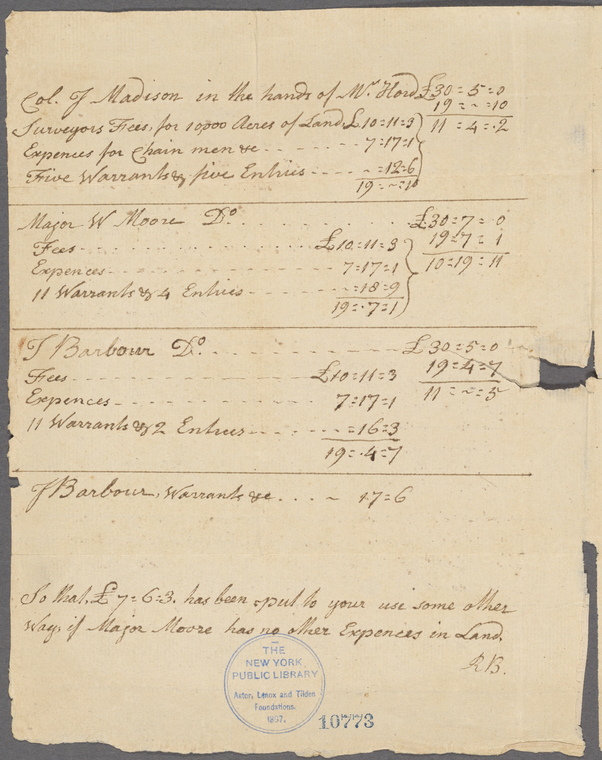 Col. J Madison in the hands of Mr. Hord £30=5=0
19=~=10
Surveyors Fees, for 10,000 Acres of Land £10=11=3 11=4=2
Expences for Chain men &c - - - - - 7=17=1
Five Warrants & five Entries - - - - - ~=12=6
19=~=10
Major W Moore Do. . . . . . . . £30=7=0
Fees - - - - - - - - £10=11=3 19=7=1
Expences - - - - - - - 7=17=1 10=19=11
11 Warrants & 4 Entries - - - - - =18=9
19=7=1
T Barbour Do. - - - - - - - £30=5=0
Fees - - - - - - - - £10=11=3 19=4=7
Expences - - - - - - - 7=17=1 11=~=5
11 Warrants & 2 Entries - - - - - =16=3
19=4=7
J Barbour, Warrants &c . . . - ~ 17=6
So that, £7=6=3. has been put to your use some other
Way, if Major Moore has no other Expences in Land.
R B.
THE
NEW YORK
PUBLIC LIBRARY
Astor, Lenox and Tilden
Foundations.
1897.
10773